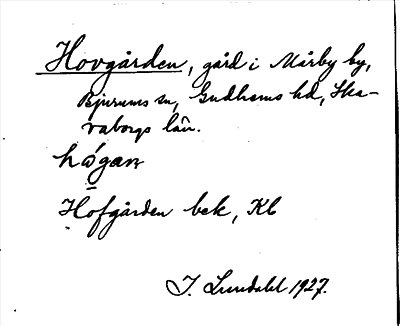 Hovgården, gård i Mårby by,
Bjurums sn, Gudhems hd, Ska-
raborgs län.
hågan
Hofgården bek, Kb
J. Lundahl 1927.